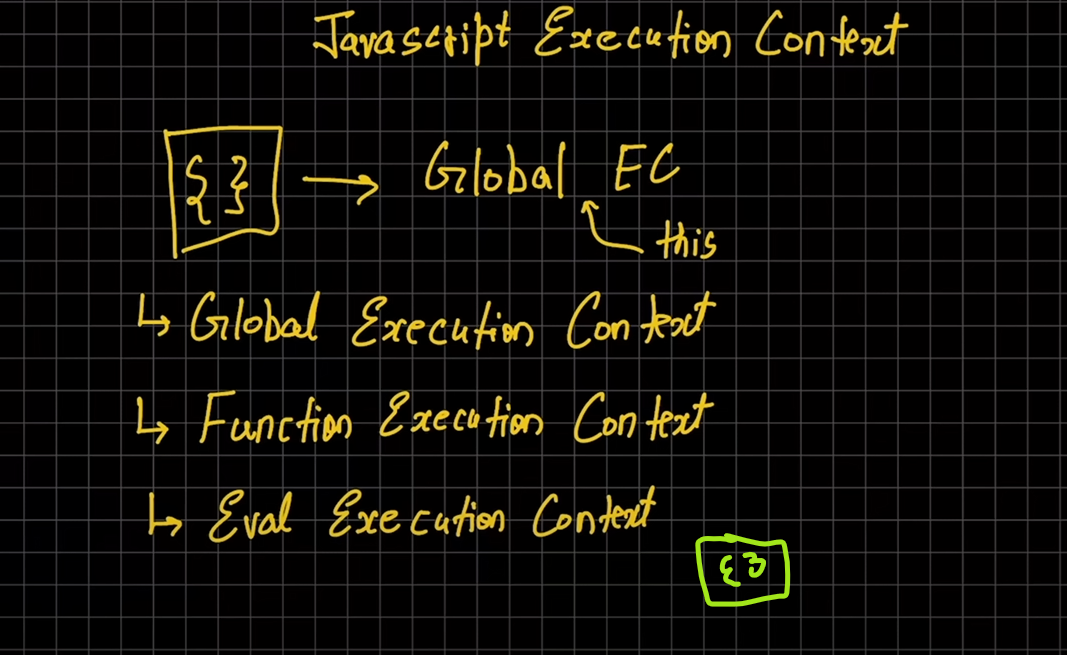 Javascript Execution Context
{ } → Global EC
this
↳ Global Execution Context
↳ Function Execution Context
↳ Eval Execution Context
{ }